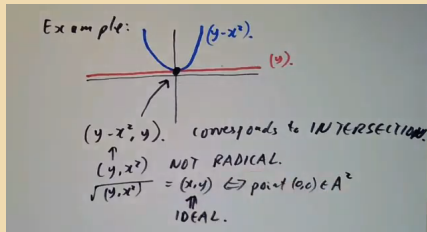 Example:
(y-x²).
(y).
(y-x², y). corresponds to INTERSECTION.
↑
(y, x²) NOT RADICAL.
√(y, x²) = (x,y) ⇔ point (0,0) ∈ A²
⇑
IDEAL.